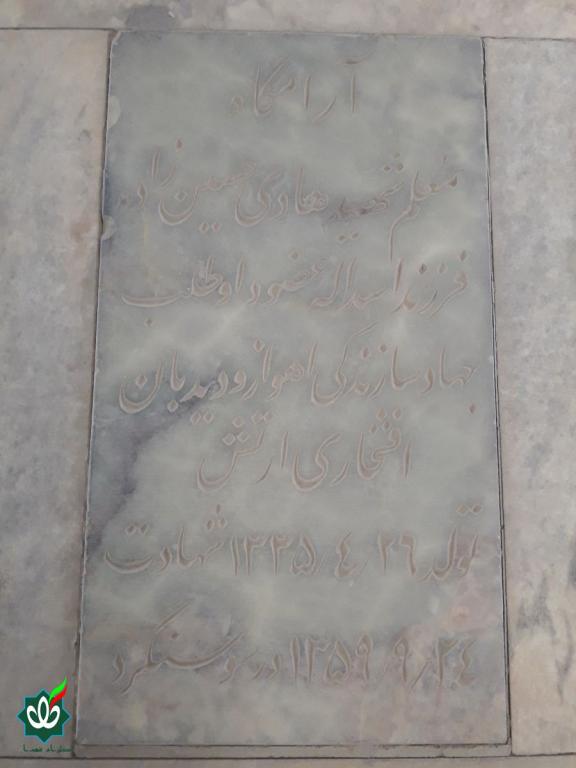 آرامگاه
معلم شهید هادی حسین زاده
فرزند اسداله عضو داوطلب
جهاد سازندگی اهواز و دیدبان
افتخاری ارتش
تولد ۱۳۳۵/۴/۲۶ شهادت
۱۳۵۹/۹/۲۴ در سوسنگرد